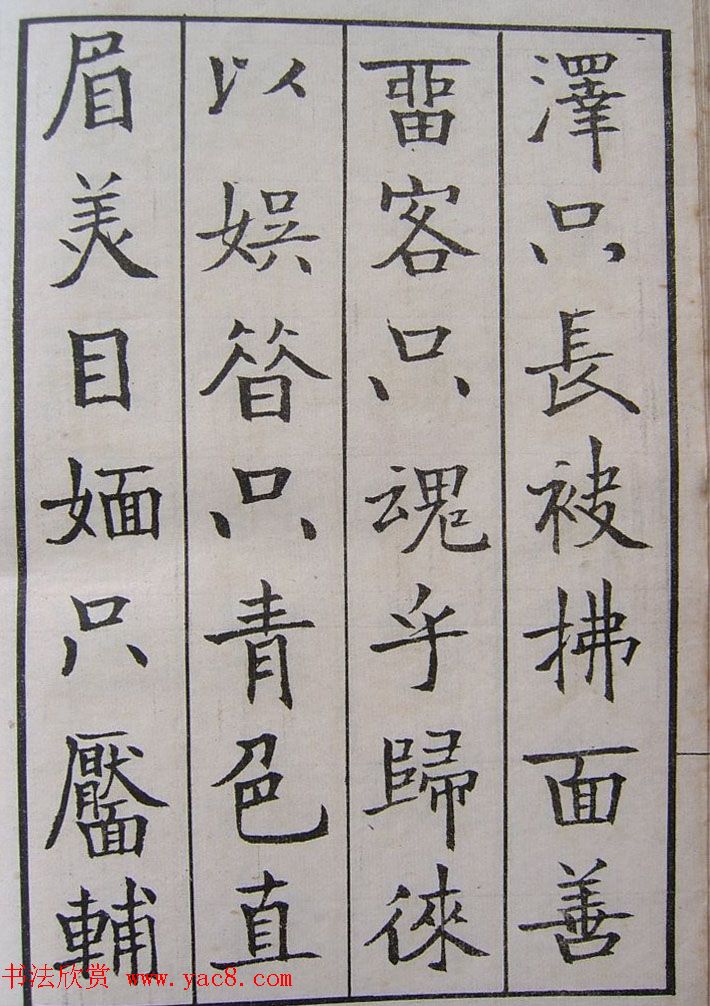 澤只長袂拂面善
留客只魂乎歸徠
以娯昝只青色直
眉美目媔只靨輔
书法欣赏 www.yac8.com